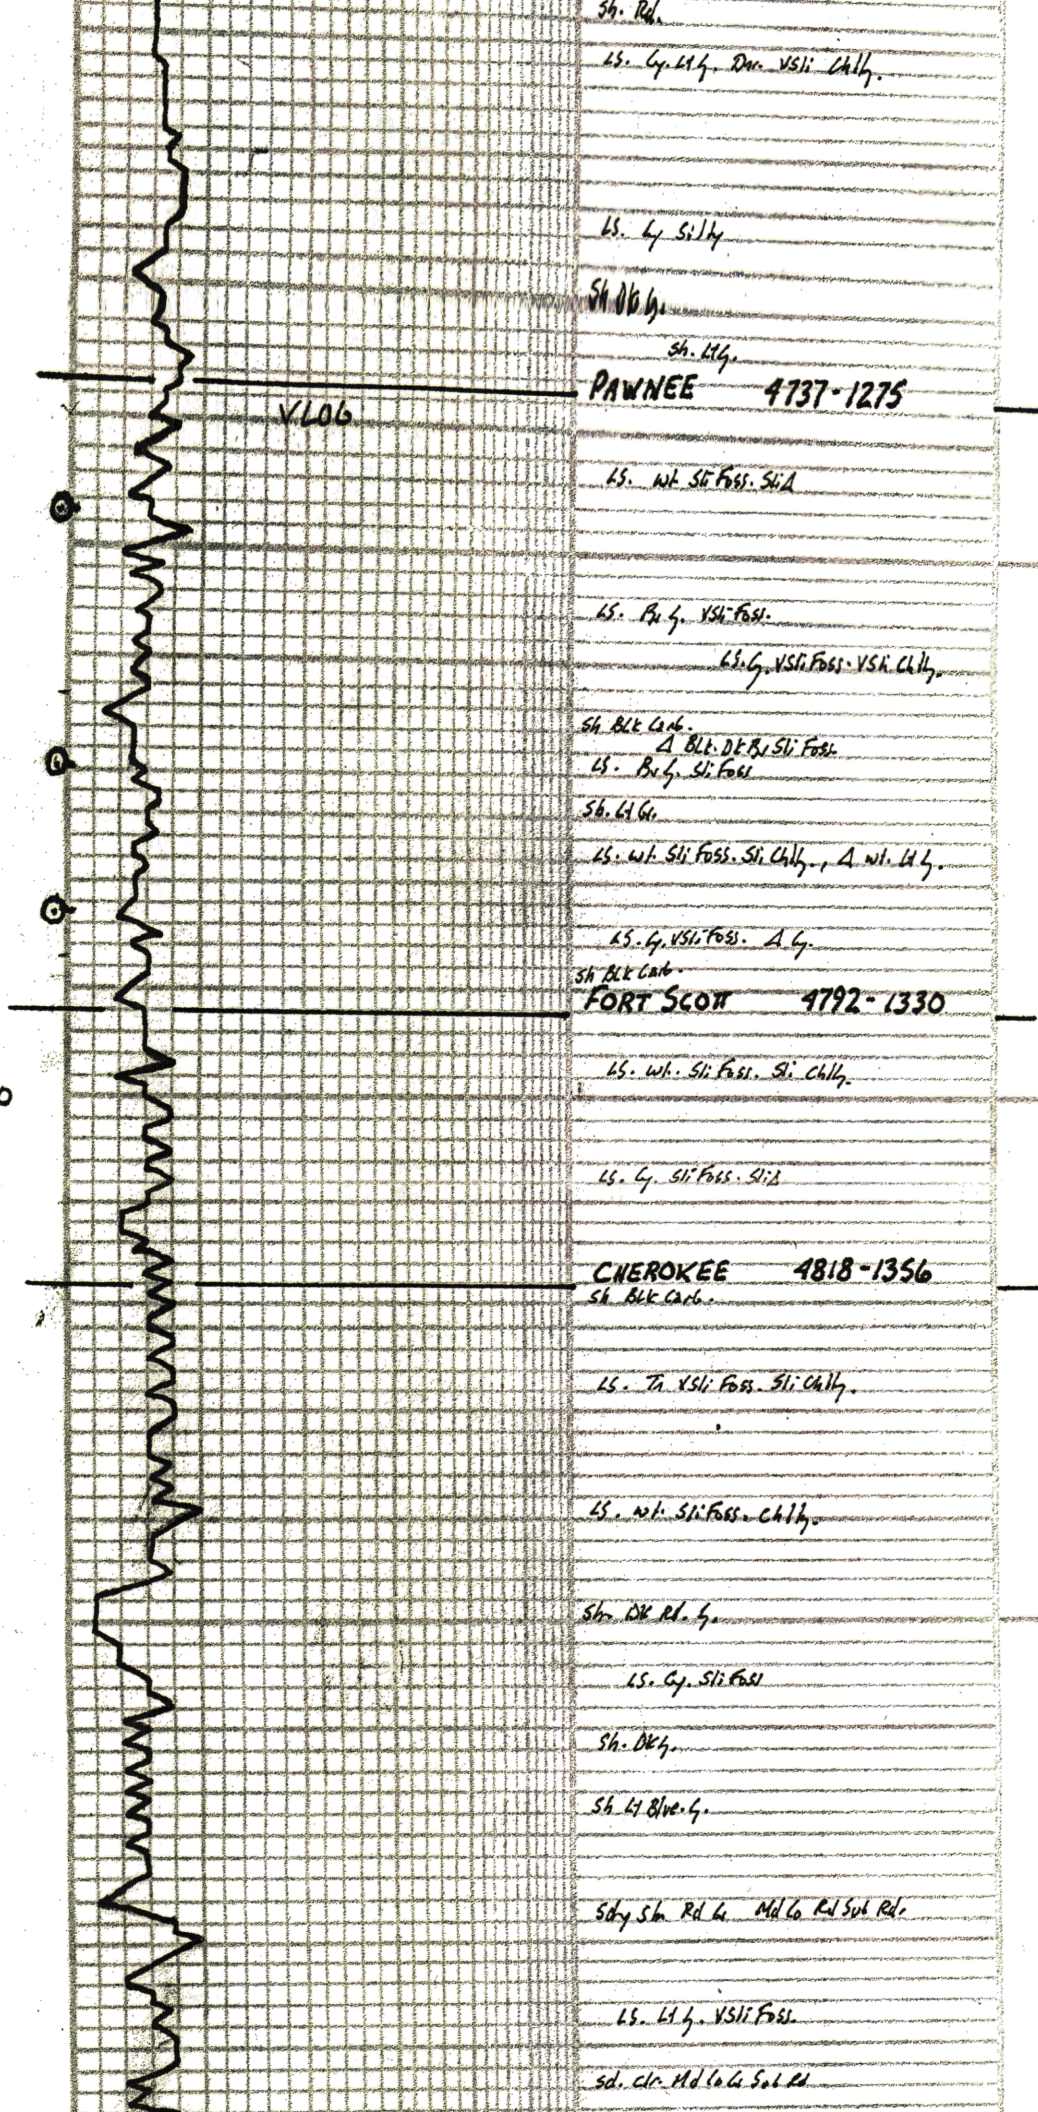 Sh. Rd.
LS. Gy. Lt G. Dns. VSli Chlky.
LS. Gy Silty
Sh Dk G.
Sh. Lt G.
PAWNEE 4737-1275
V.LOG
LS. Wt Sli Foss. Sli Δ
LS. Br G. VSli Foss.
LS. G. VSli Foss. VSli Chlky.
Sh BLK Carb.
Δ BLK. Dk Br Sli Foss.
LS. Br G. Sli Foss
Sh. Lt Gr.
LS. Wt. Sli Foss. Sli. Chlky., Δ Wt. Lt G.
LS. G. VSli Foss. Δ G.
Sh BLK Carb.
FORT SCOTT 4792-1330
LS. Wt. Sli Foss. Sli Chlky.
LS. Gy. Sli Foss. Sli Δ
CHEROKEE 4818-1356
Sh BLK Carb.
LS. Tn VSli Foss. Sli Chlky.
LS. Wt. Sli Foss. Chlky.
Sh. DK Rd. G.
LS. Gy. Sli Foss
Sh. DK G.
Sh Lt Blue. G.
Sdy Sh Rd Md Rd Sub Rd.
LS. Lt G. VSli Foss.
Sd. Clr. Md Sub Rd